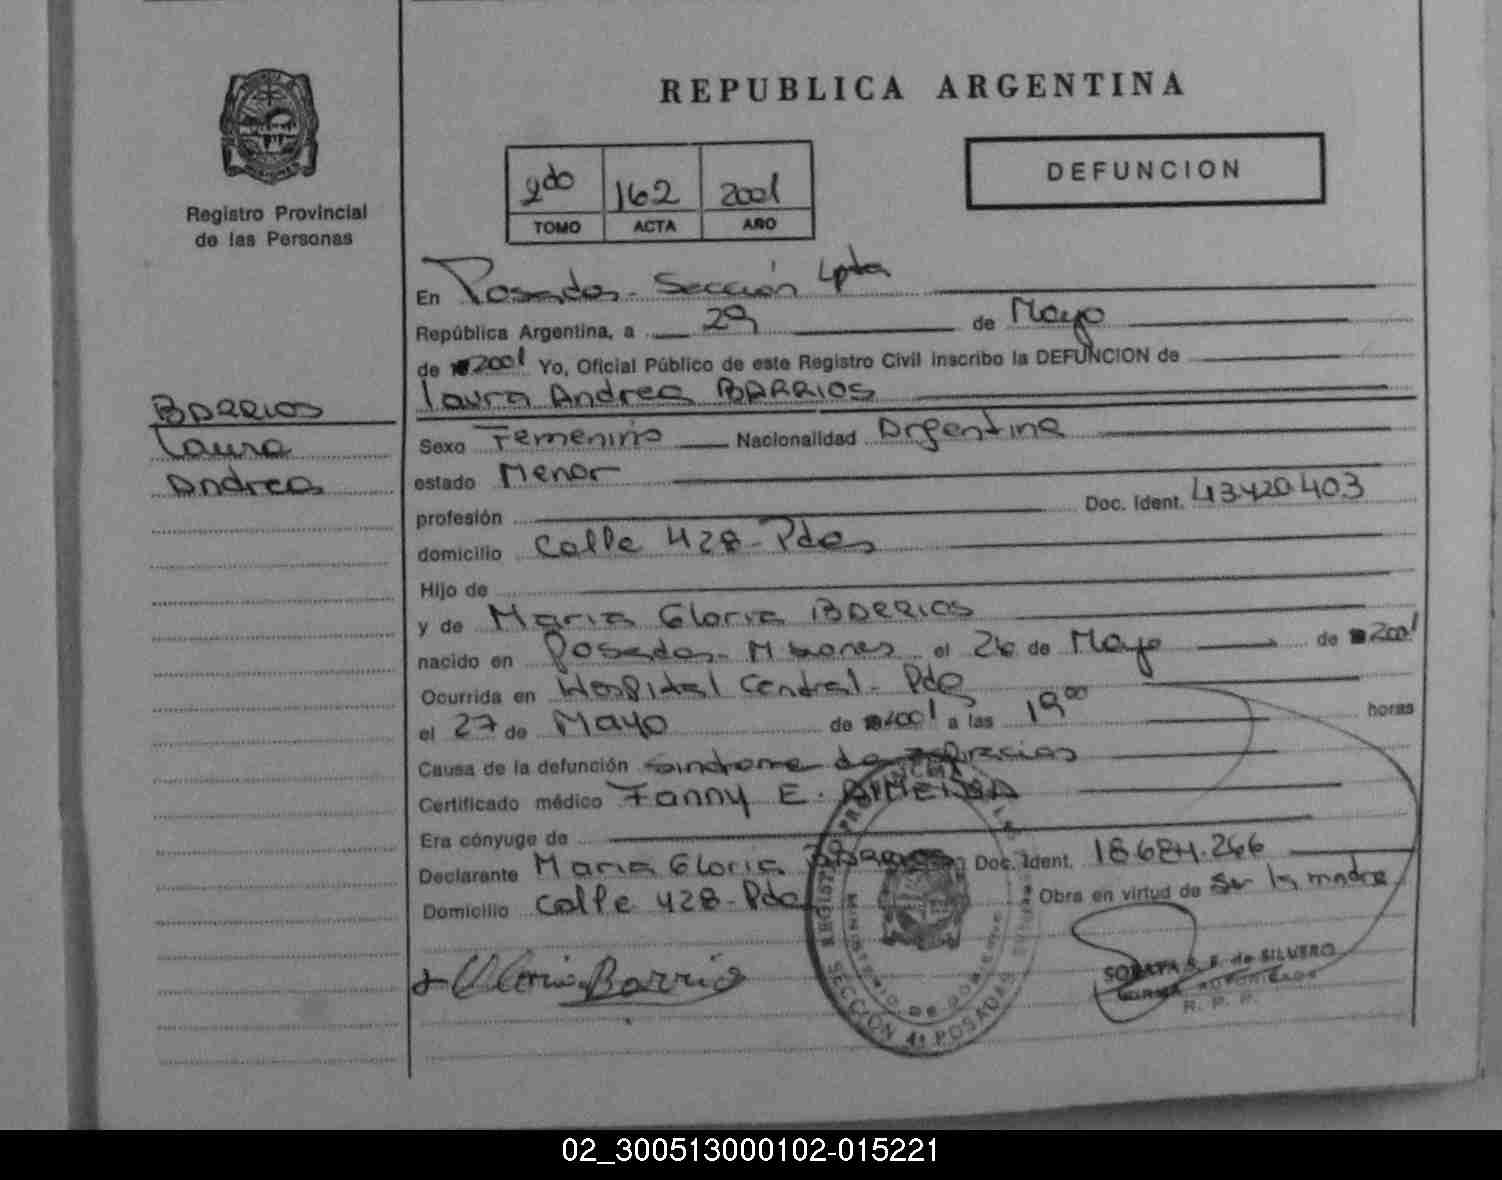 REPUBLICA ARGENTINA
Registro Provincial
de las Personas
2do 162 2001
TOMO ACTA AÑO
DEFUNCION
BARRIOS
Laura
Andrea
En Posadas - Sección 4pta
República Argentina, a 29 de Mayo
de 2001 Yo, Oficial Público de este Registro Civil inscribo la DEFUNCION de
Laura Andrea BARRIOS
Sexo Femenino Nacionalidad Argentina
estado Menor
profesión Doc. Ident. 43.420.403
domicilio Calle 428 - Pdas
Hijo de
y de Maria Gloria BARRIOS
nacido en Posadas - Misiones el 26 de Mayo de 2001
Ocurrida en Hospital Central - Pdas
el 27 de Mayo de 2001 a las 19 00 horas
Causa de la defunción sindrome de
Certificado médico Fanny E. ALMEIDA
Era cónyuge de
Declarante Maria Gloria Barrios Doc. Ident. 18.684.266
Domicilio Calle 428 - Pdas Obra en virtud de ser la madre
Gloria Barrios
SECCIÓN 4ª POSADAS
MINISTERIO DE GOBIERNO
S. F. de SILVERO
FIRMA AUTORIZADA
R. P. P.
02_300513000102-015221